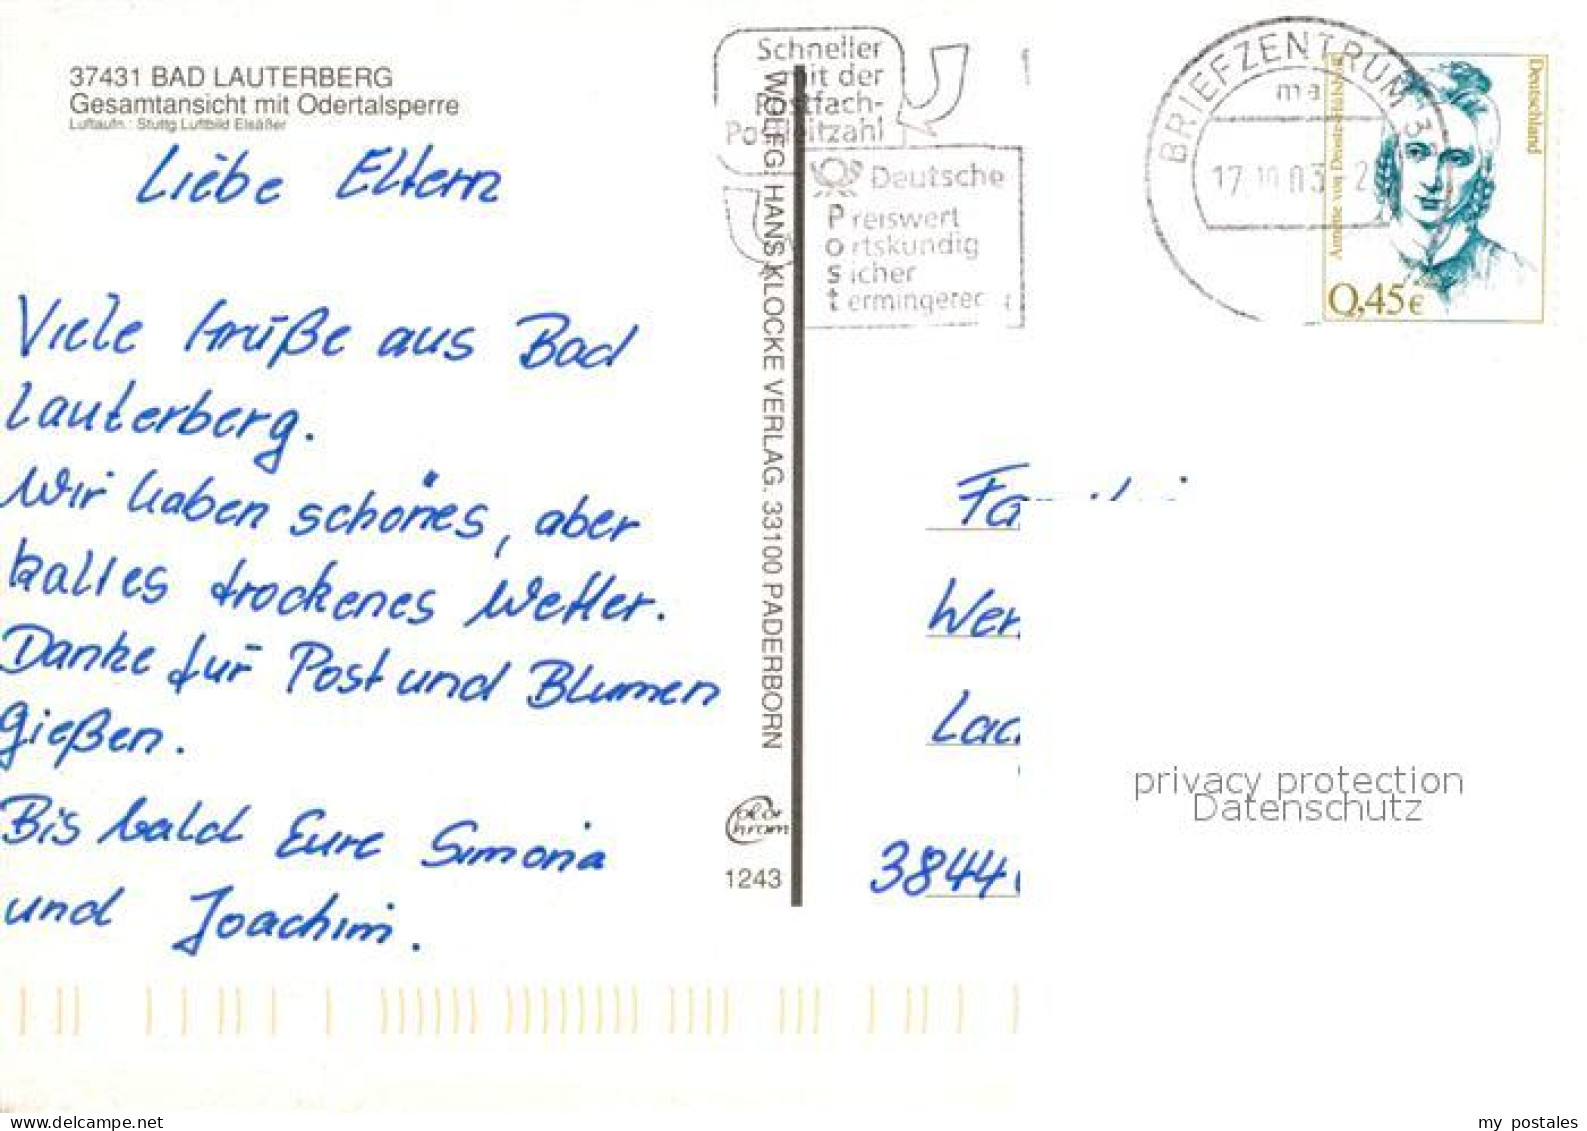 37431 BAD LAUTERBERG
Gesamtansicht mit Odertalsperre
Luftaufn.: Stuttg. Luftbild Elsäßer
Liebe Eltern
Viele Grüße aus Bad
Lauterberg.
Wir haben schönes, aber
kaltes trockenes Wetter.
Danke für Post und Blumen
gießen.
Bis bald Eure Simona
und Joachim.
WOLFG. HANS KLOCKE VERLAG. 33100 PADERBORN
color
chrom
1243
Schneller
mit der
Postfach-
Postleitzahl
Deutsche
Preiswert
Ortskundig
sicher
termingerec t
BRIEFZENTRUM 3
ma
17.10.03 - 2
Deutschland
Annette von Droste-Hülshoff
0,45€
Fa
Wer
Lac
3844
privacy protection
Datenschutz
www.delcampe.net
my postales